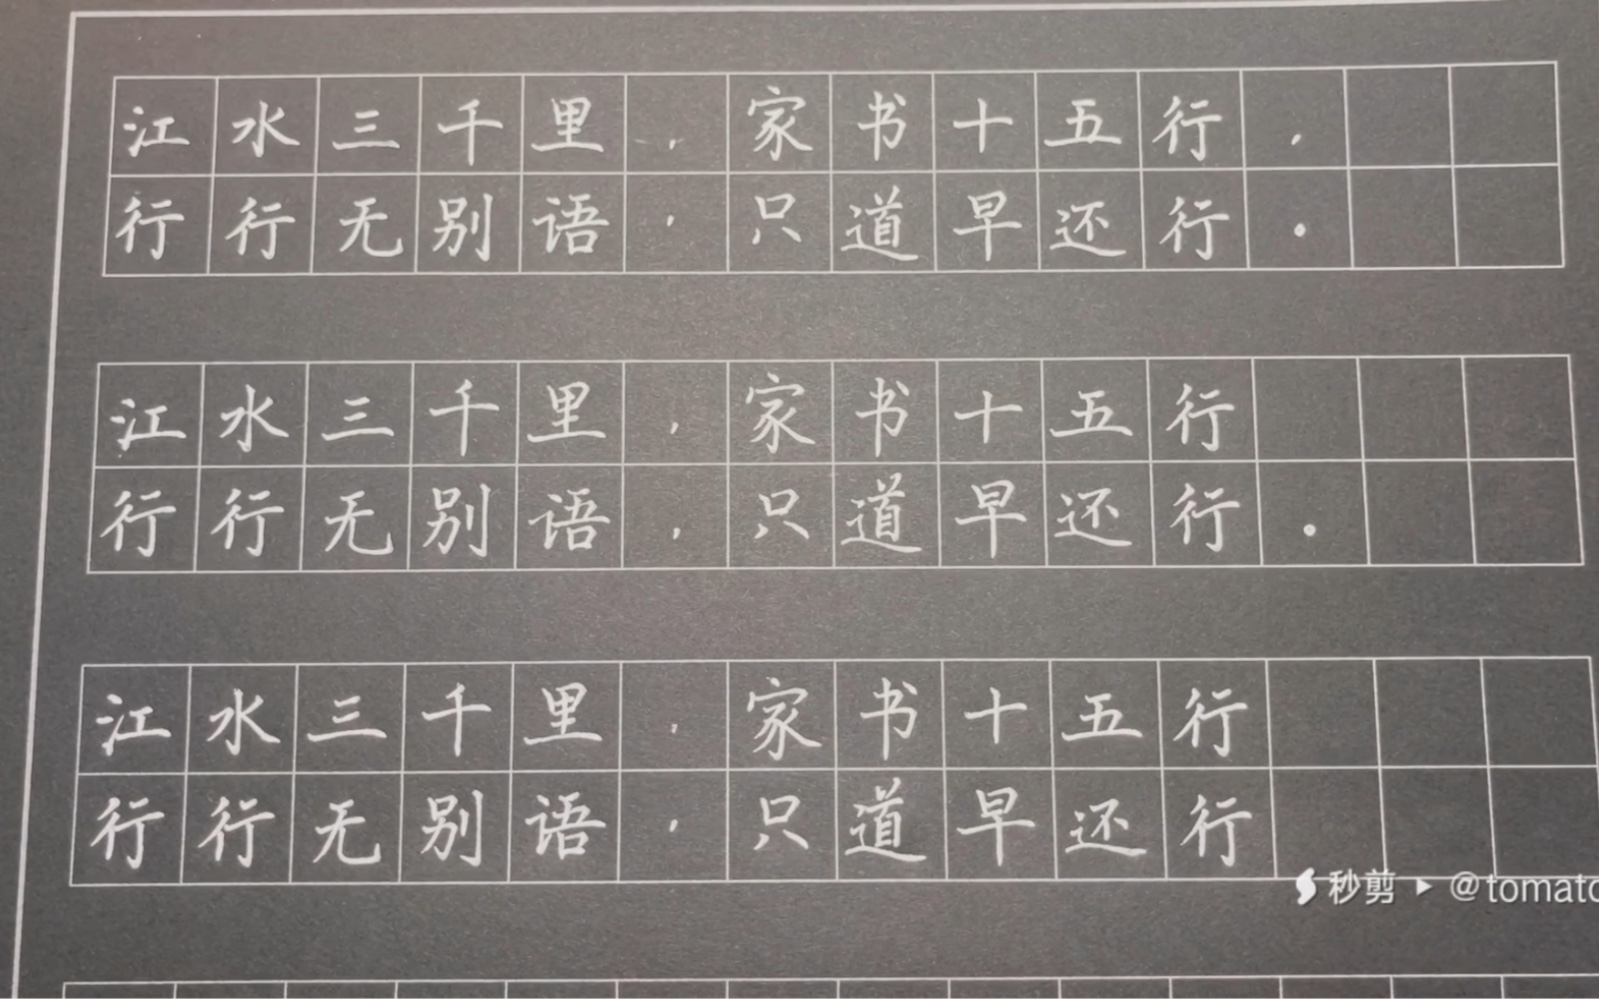 江水三千里，家书十五行，
行行无别语，只道早还行。
江水三千里，家书十五行
行行无别语，只道早还行。
江水三千里，家书十五行
行行无别语，只道早还行
秒剪 ▶ @tomato